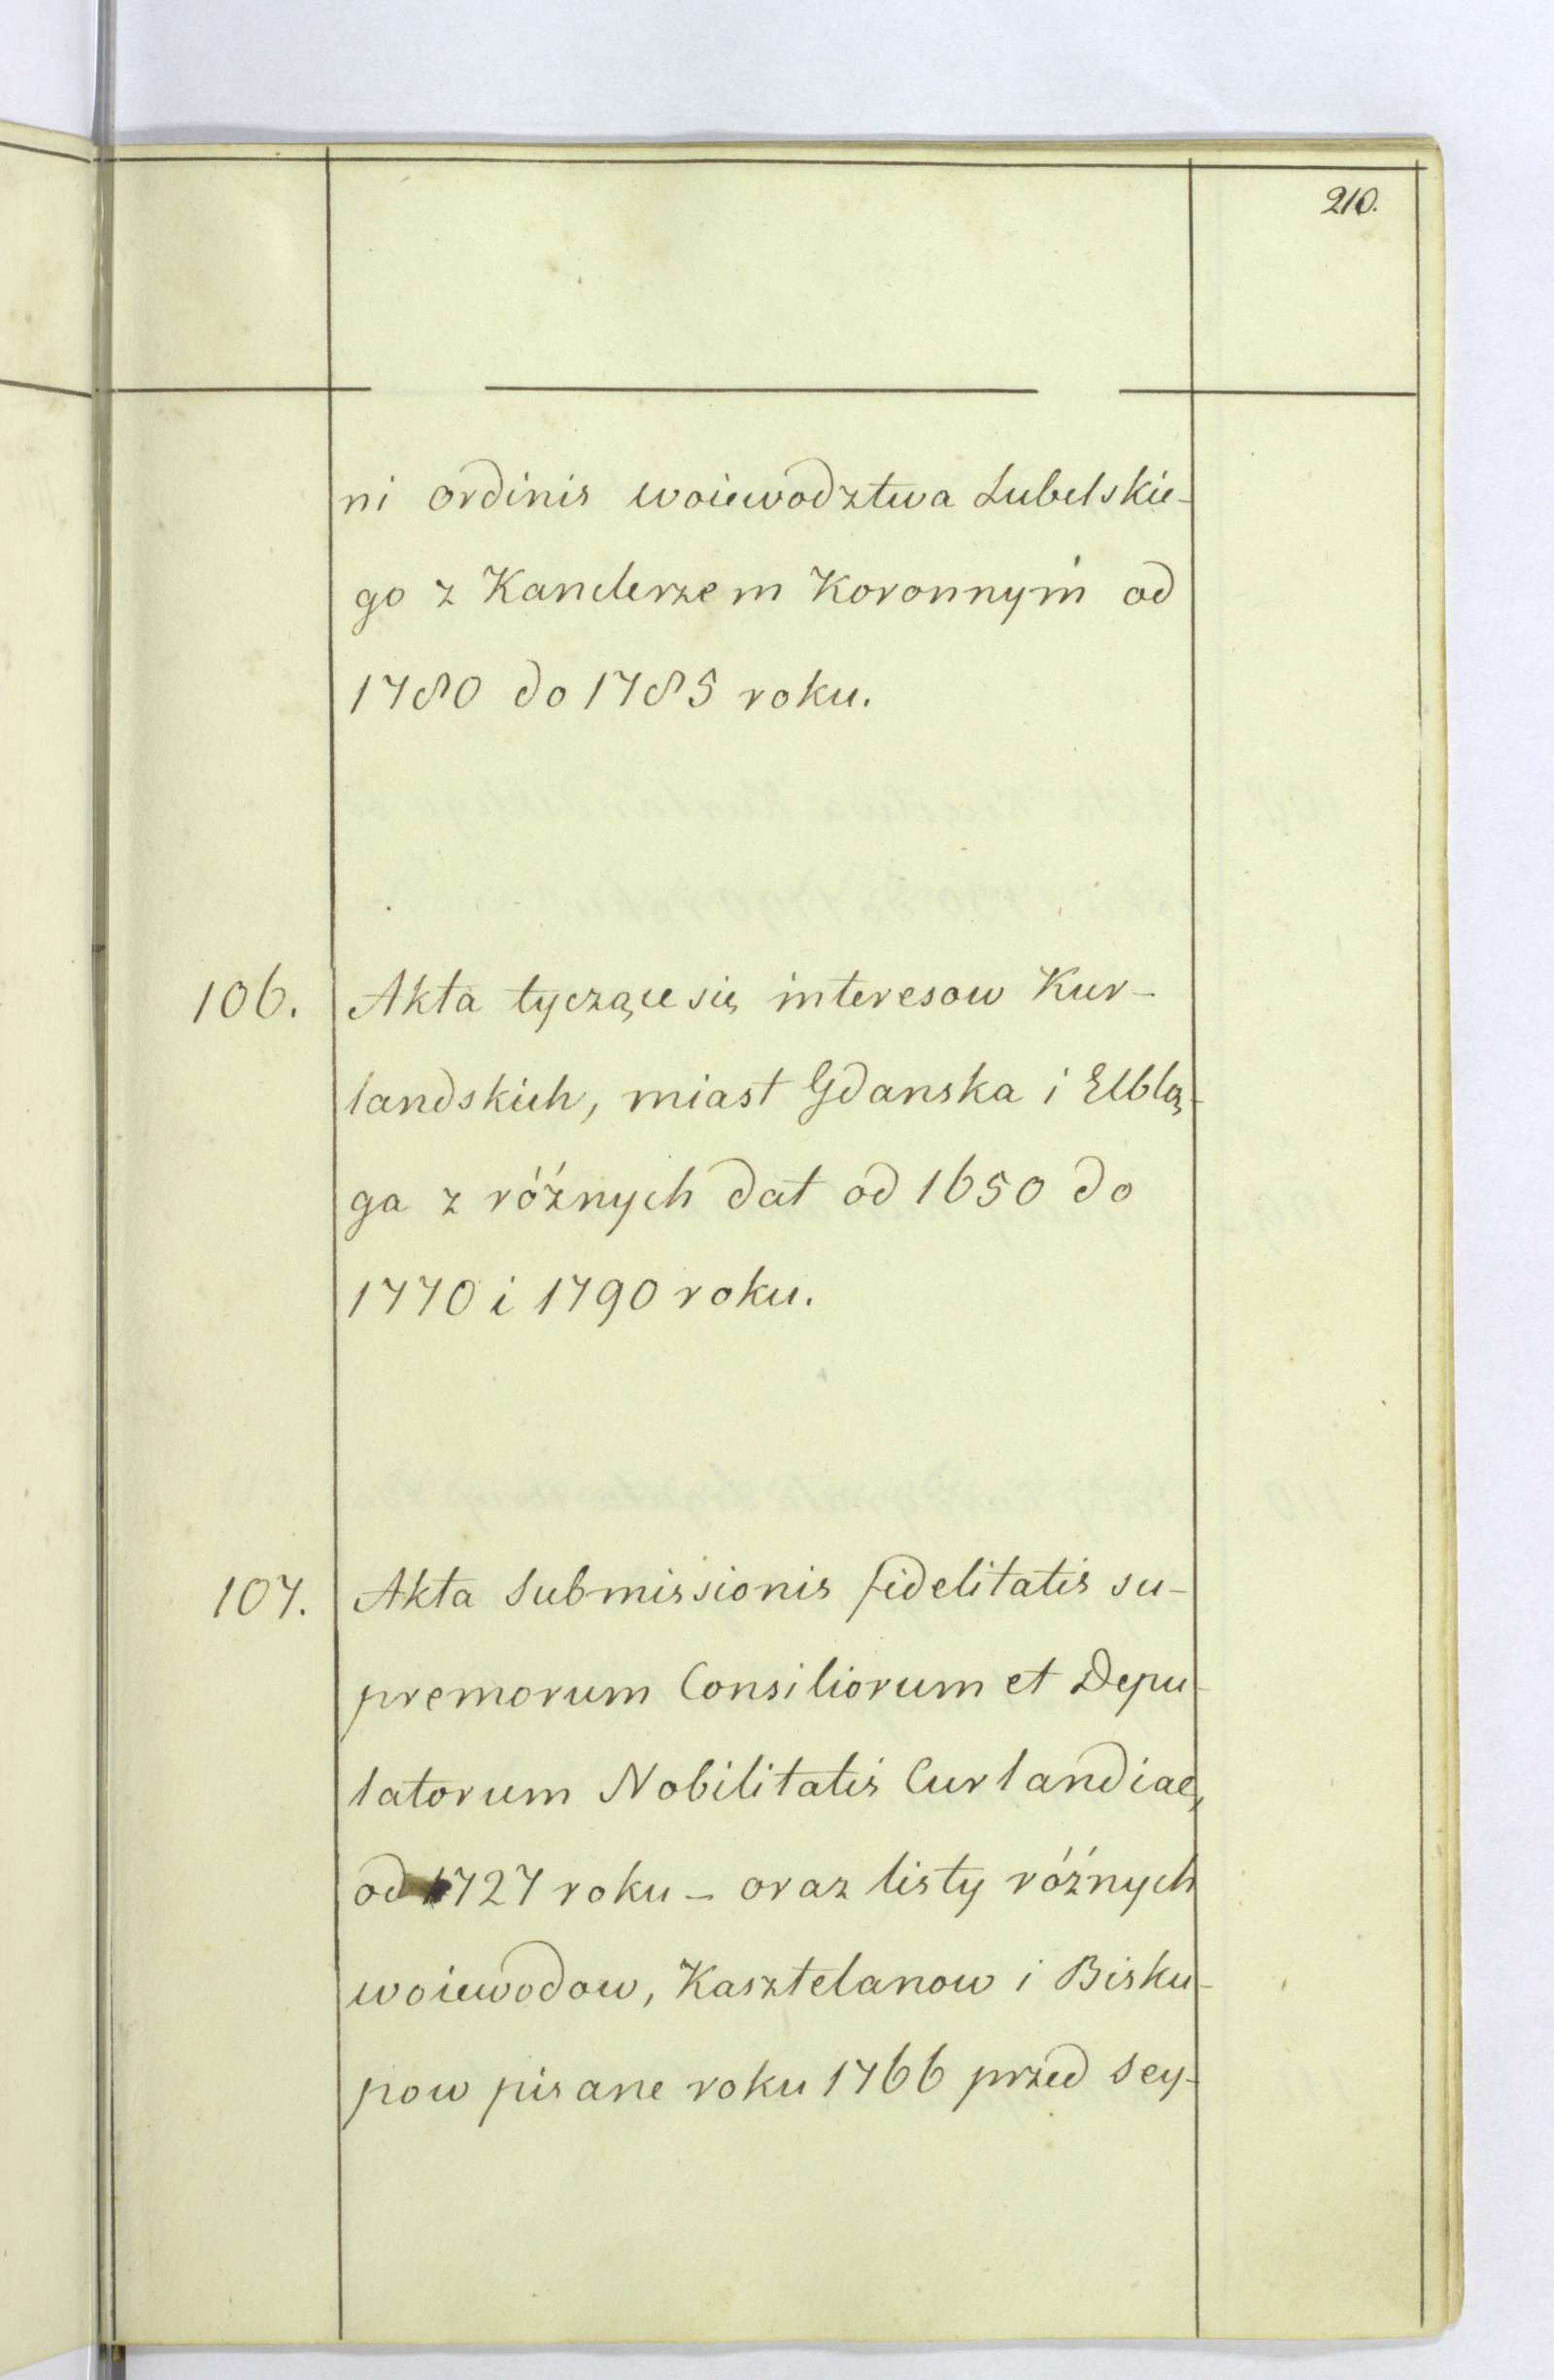 210.
ni ordinis woiewodztwa Lubelskie-
go z Kanclerzem Koronnym od
1780 do 1785 roku.
106. Akta tyczące się interesow Kur-
landskich, miast Gdanska i Elblą-
ga z różnych dat od 1650 do
1770 i 1790 roku.
107. Akta Submissionis fidelitatis su-
premorum Consiliorum et Depu-
tatorum Nobilitatis Curlandiae,
od 1727 roku – oraz listy różnych
woiewodow, Kasztelanow i Bisku-
pow pisane roku 1766 przed Sey-